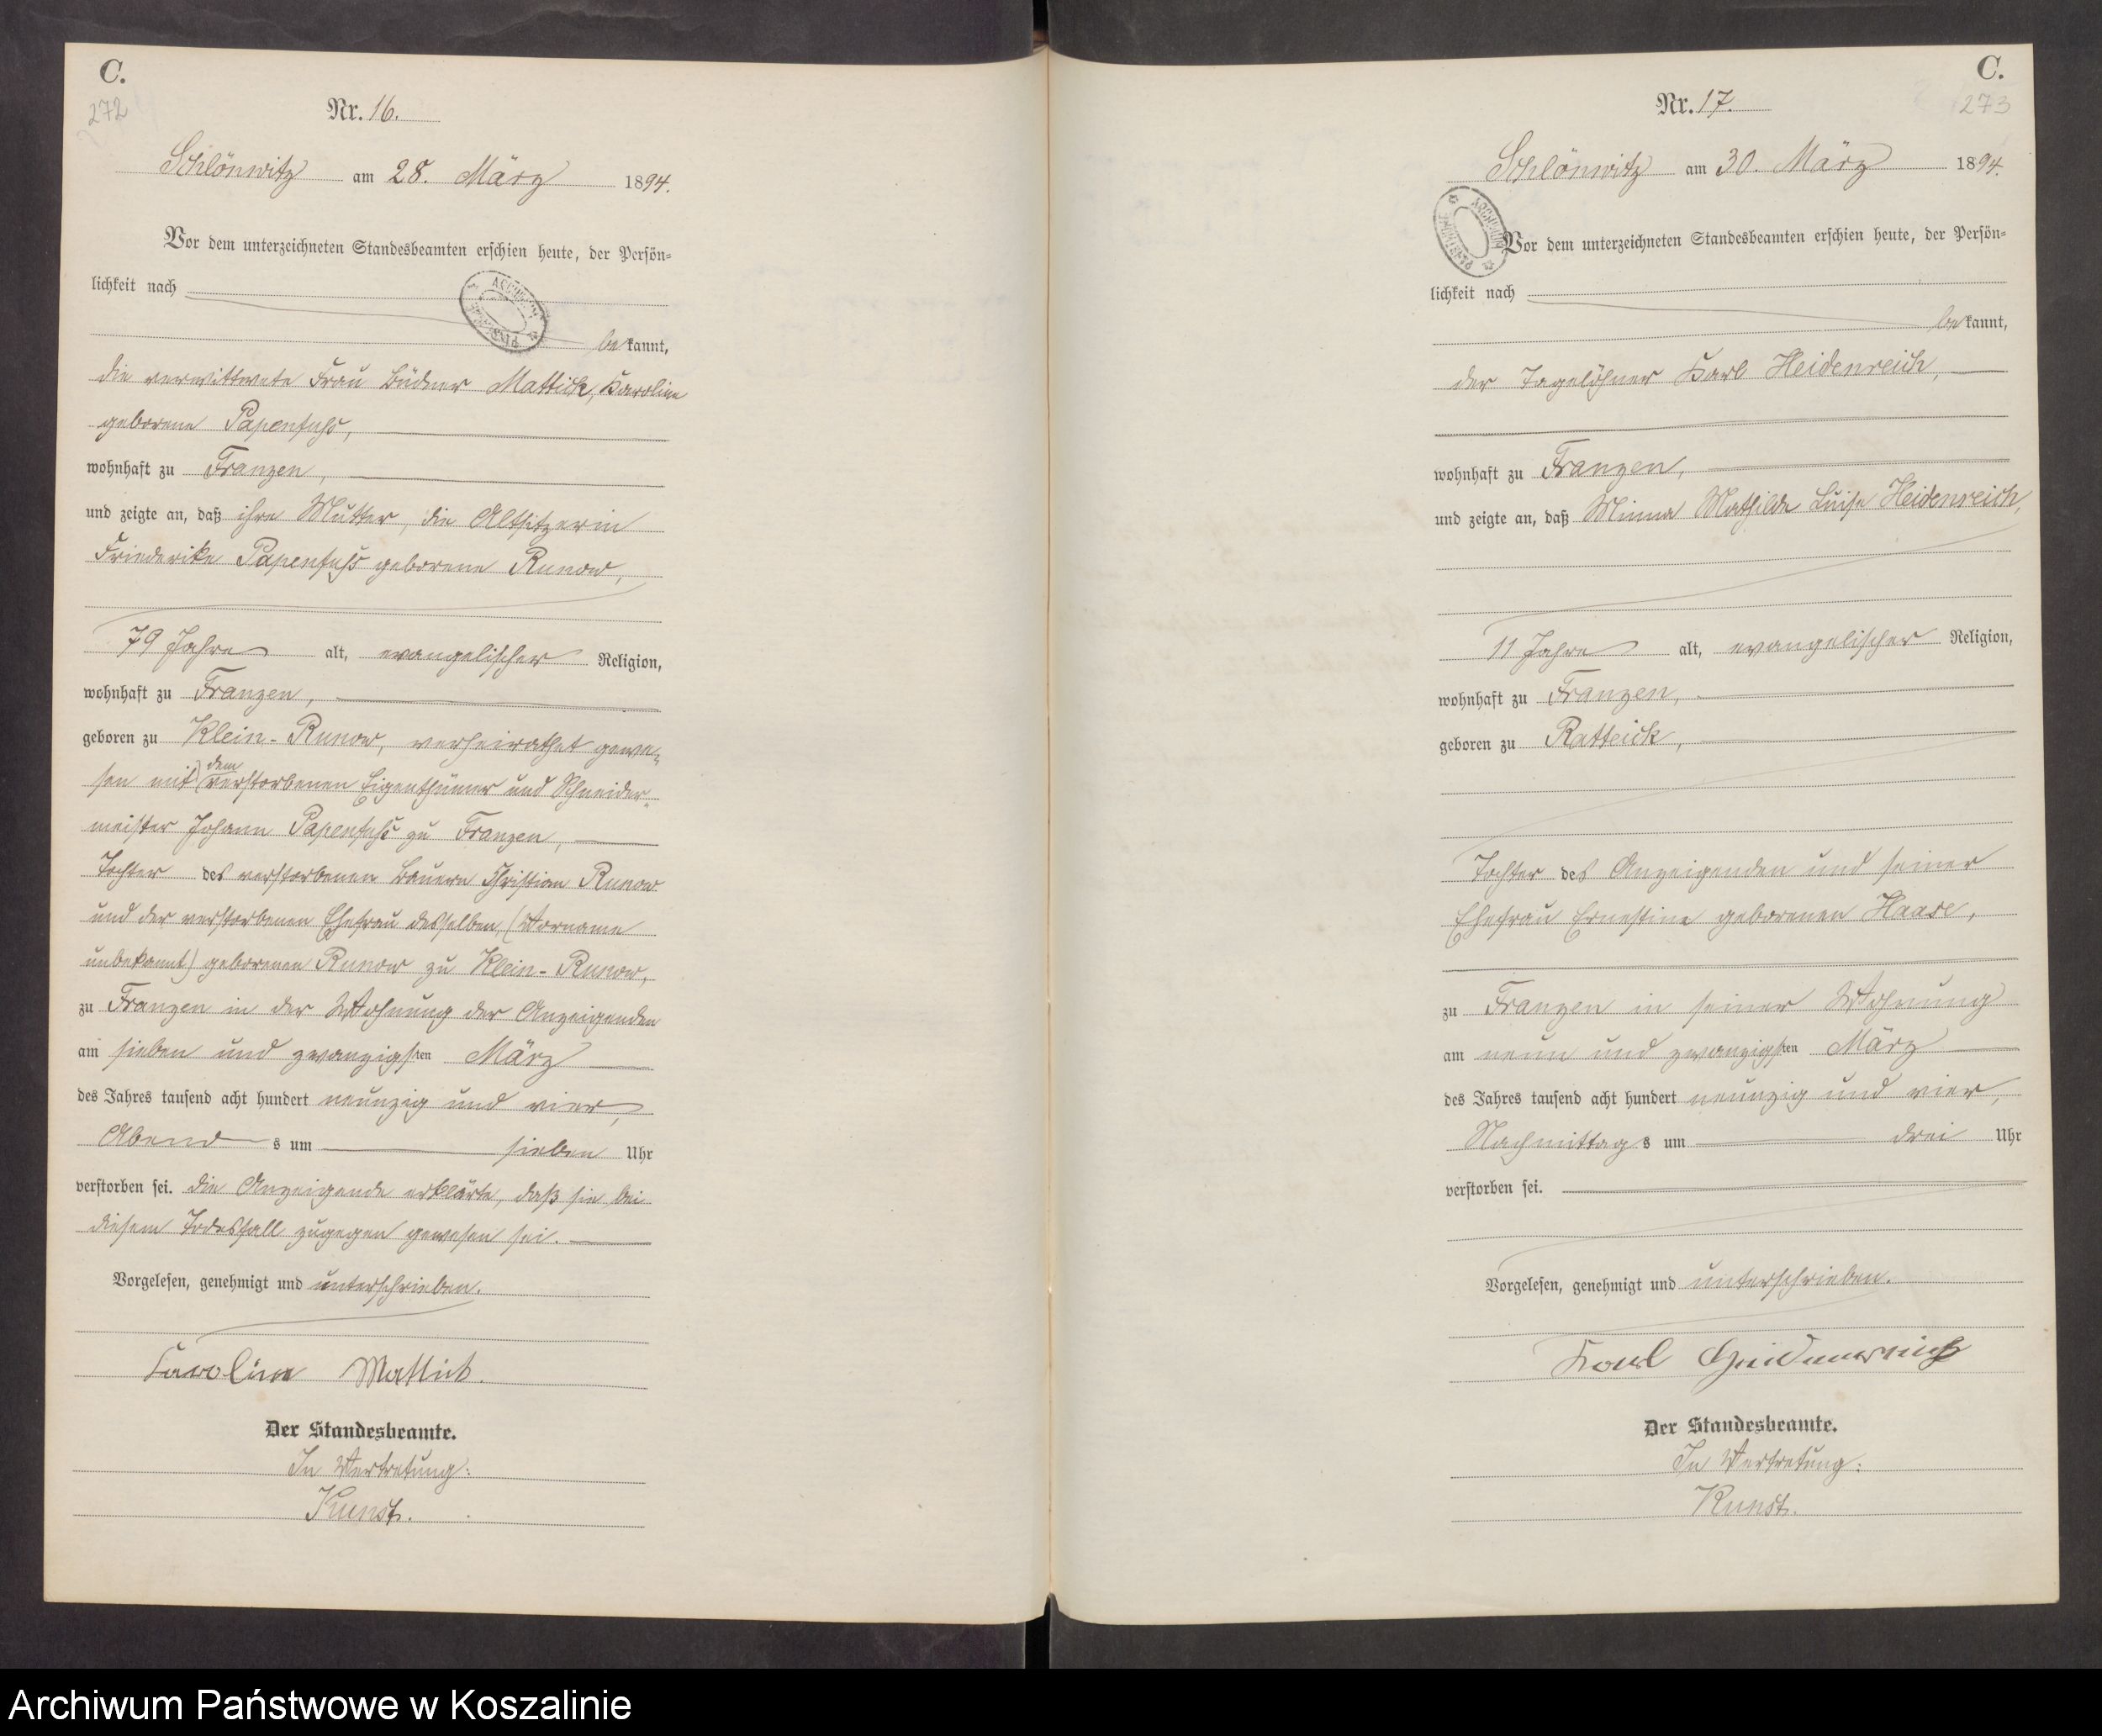 C.
272
Nr. 16.
Schlönwitz am 28. März 1894.
Vor dem unterzeichneten Standesbeamten erschien heute, der Persön-
lichkeit nach
bekannt,
die verwittwete Frau Büdner Mattick, Karoline
geborene Papenfuß,
wohnhaft zu Franzen,
und zeigte an, daß ihre Mutter, die Altsitzerin
Friederike Papenfuß geborene Runow,
79 Jahre alt, evangelischer Religion,
wohnhaft zu Franzen,
geboren zu Klein-Runow, verheirathet gewe-
dem
sen mit verstorbenen Eigenthümer und Schneider-
meister Johann Papenfuß zu Franzen,
Tochter des verstorbenen Bauern Christian Runow
und der verstorbenen Ehefrau desselben, (Vorname
unbekannt) geborenen Runow zu Klein-Runow,
zu Franzen in der Wohnung der Anzeigenden
am sieben und zwanzigsten März
des Jahres tausend acht hundert neunzig und vier,
Abends um sieben Uhr
verstorben sei. Die Anzeigende erklärte, daß sie bei
diesem Todesfall zugegen gewesen sei.
Vorgelesen, genehmigt und unterschrieben.
Karoline Mattick.
Der Standesbeamte.
In Vertretung:
Kunst.
C.
273
Nr. 17.
Schlönwitz am 30. März 1894.
Vor dem unterzeichneten Standesbeamten erschien heute, der Persön-
lichkeit nach
bekannt,
der Tagelöhner Karl Heidenreich,
wohnhaft zu Franzen,
und zeigte an, daß Minna Mathilde Luise Heidenreich,
11 Jahre alt, evangelischer Religion,
wohnhaft zu Franzen,
geboren zu Ratteick,
Tochter des Anzeigenden und seiner
Ehefrau Ernestine geborenen Haase,
zu Franzen in seiner Wohnung
am neun und zwanzigsten März
des Jahres tausend acht hundert neunzig und vier,
Nachmittags um drei Uhr
verstorben sei.
Vorgelesen, genehmigt und unterschrieben.
Karl Heidenreich
Der Standesbeamte.
In Vertretung:
Kunst.
Archiwum Państwowe w Koszalinie